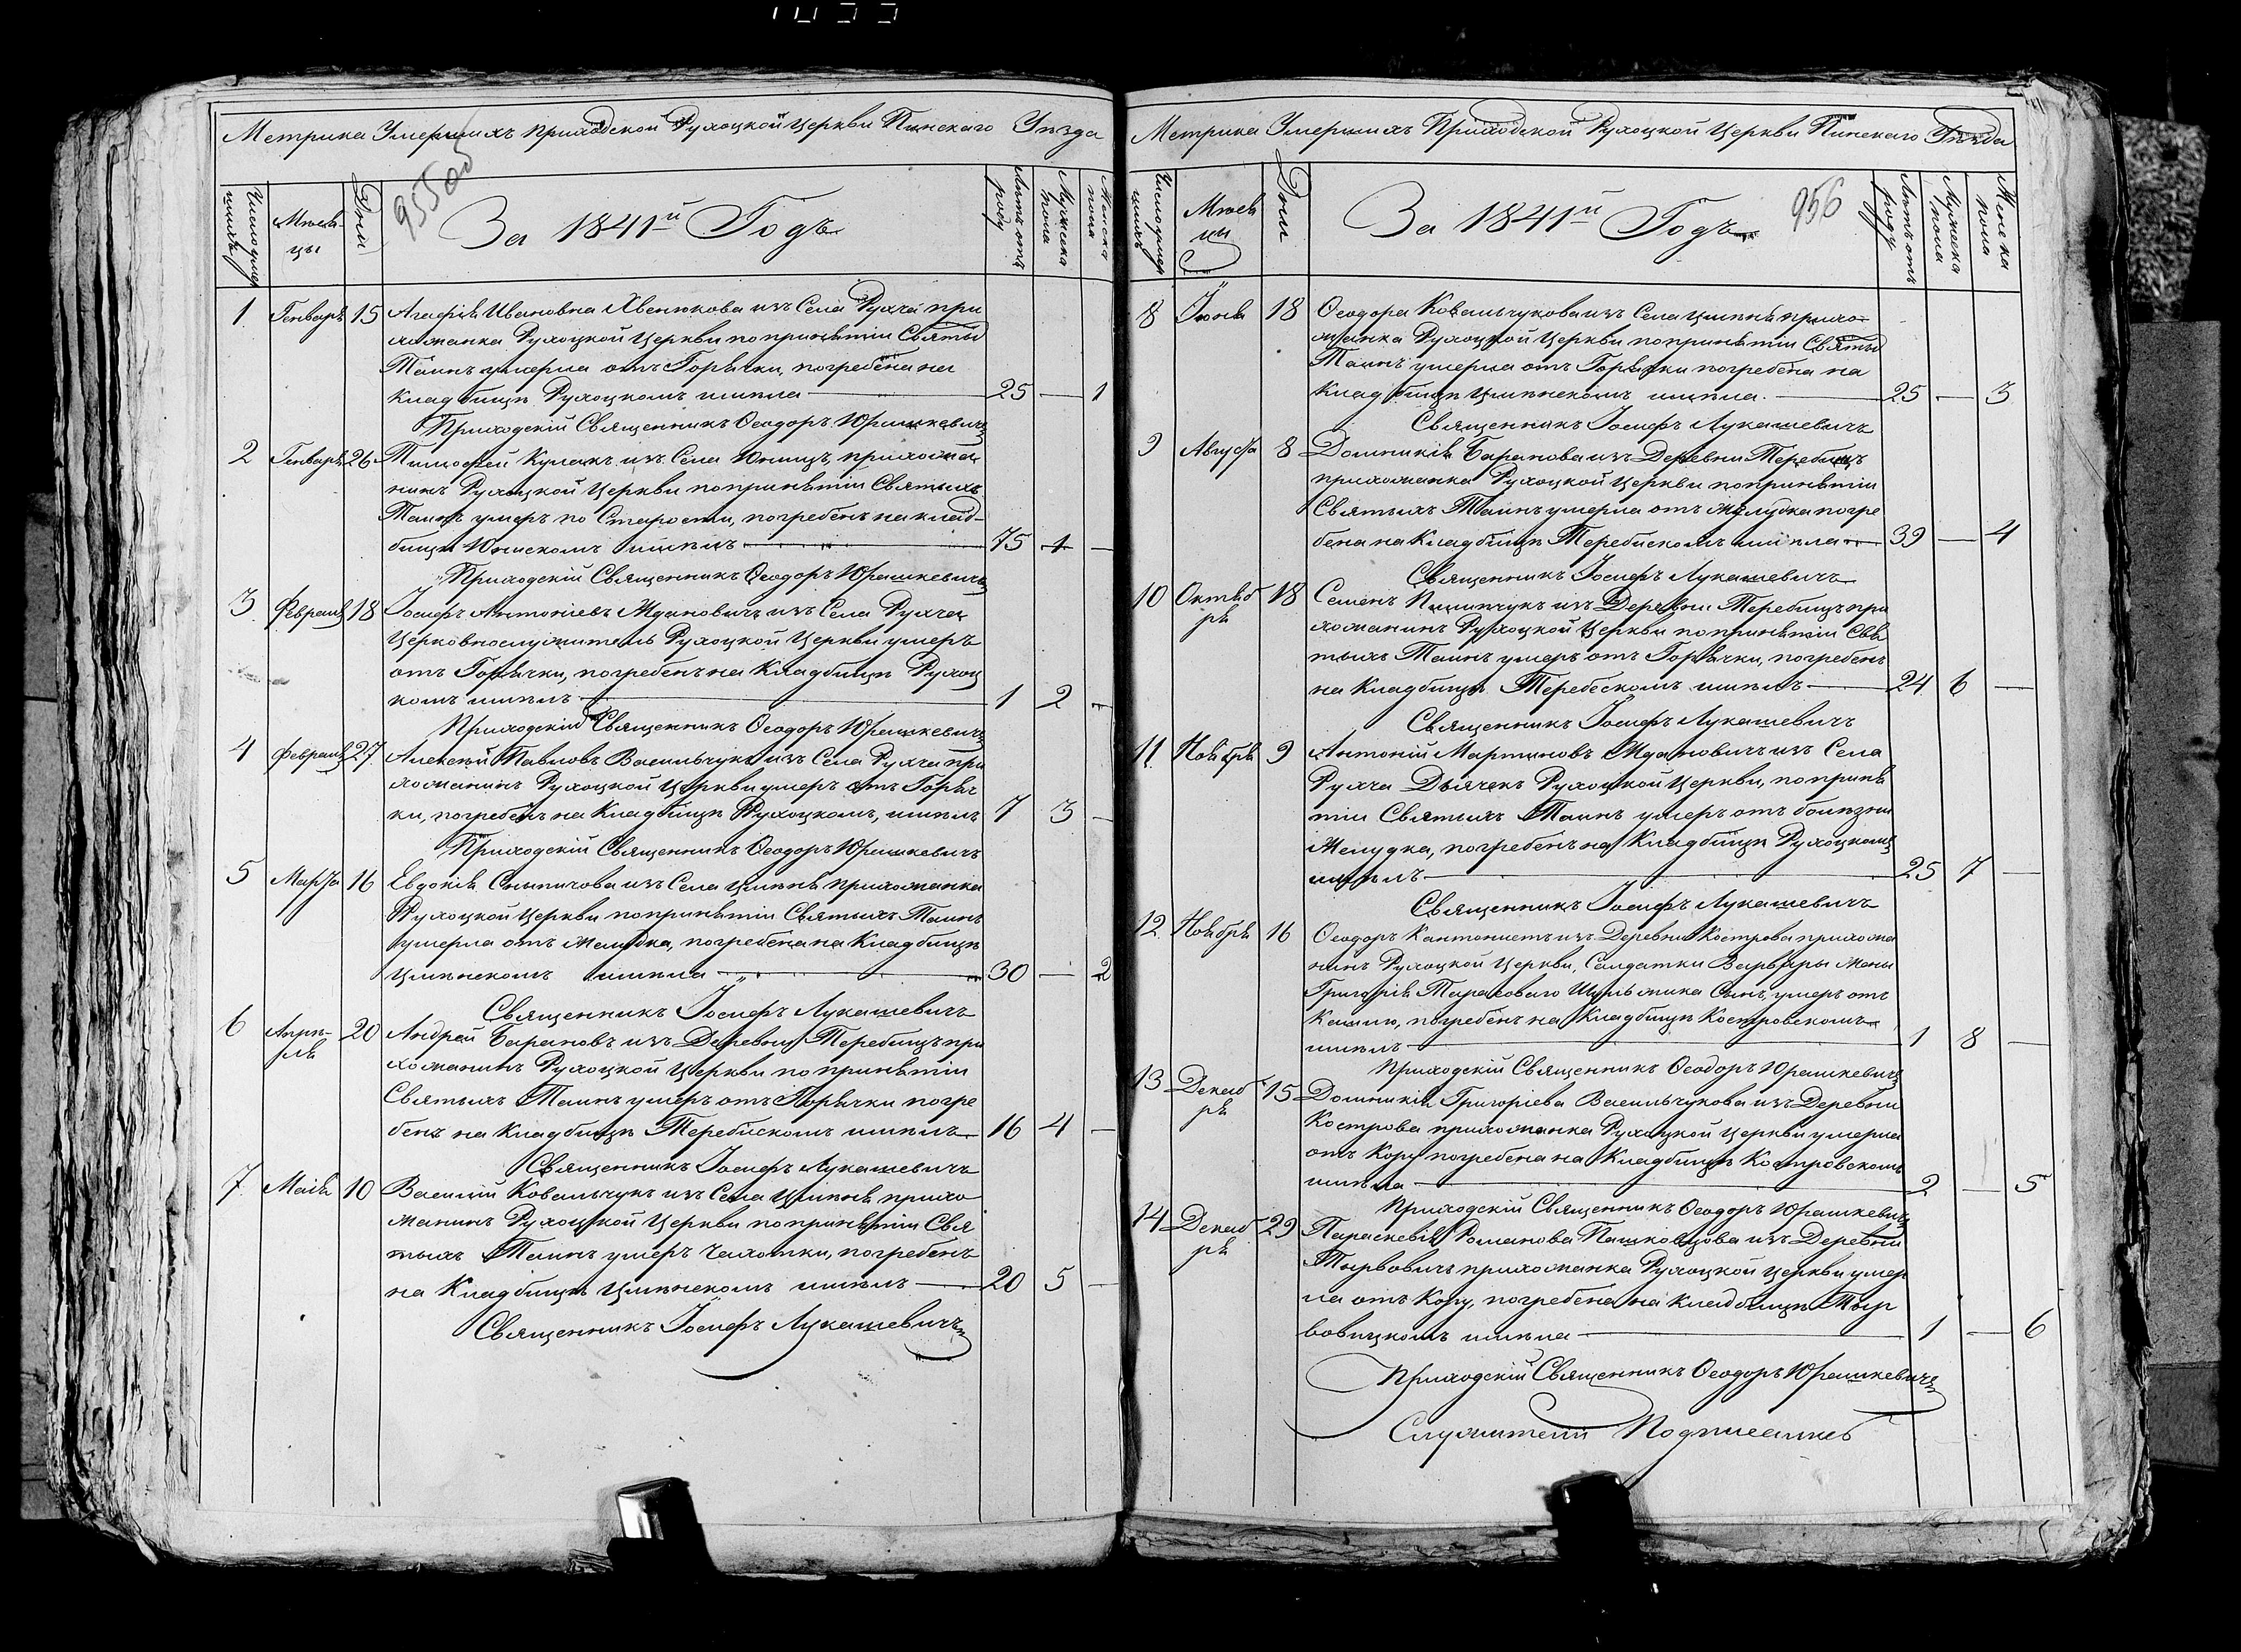 Метрика Умершихъ приходской Рухоцкой Церкви Пинскаго Уѣзда
955 об
Число умершихъ
Мѣсяцы
Дни
За 1841й Годъ
Лѣтъ отъ роду
Мужеска пола
Женска пола
1 Генваря 15 Агафія Ивановна из Села Рухча при
хожанка Рухоцкой Церкви по принятіи Святы
Таинъ умерла отъ Горячки, погребена на
кладбищѣ Рухоцкомъ 25 — 1
Приходскій Священникъ Ѳеодоръ Юрашкевичъ
2 Генваря 26 Тимофей Кулакъ изъ Села Юнищъ, прихожа
нинъ Рухоцкой Церкви по принятіи Святыхъ
Таинъ умеръ по Старости, погребенъ на клад-
бищѣ Юнискомъ 75 1 —
Приходскій Священникъ Ѳеодоръ Юрашкевичъ
3 Февраля 18 Іосифъ Антоніевъ Ждановичъ изъ Села Рухча
Церковнослужитель Рухоцкой Церкви умеръ
отъ Горячки, погребенъ на Кладбищѣ Рухоц
комъ 1 2 —
Приходскій Священникъ Ѳеодоръ Юрашкевичъ
4 Февраля 27 Алексѣй Павловъ Васильчукъ изъ Села Рухча при
хожанинъ Рухоцкой Церкви умеръ отъ Горяч
ки, погребенъ на Кладбищѣ Рухоцкомъ, 7 3 —
Приходскій Священникъ Ѳеодоръ Юрашкевичъ
5 Марта 16 Евдокія изъ Села Цмѣня прихожанка
Рухоцкой Церкви по принятіи Святыхъ Таинъ
умерла отъ Желудка, погребена на Кладбищѣ
Цмѣнскомъ 30 — 2
Священникъ Іосифъ Лукашевичъ
6 Апрѣ-
ля 20 Андрей Барановъ изъ Деревни Теребищъ при
хожанинъ Рухоцкой Церкви по принятіи
Святыхъ Таинъ умеръ отъ Горячки погре
бенъ на Кладбищѣ Теребискомъ 16 4 —
Священникъ Іосифъ Лукашевичъ
7 Маія 10 Василій Ковальчукъ изъ Села Цмѣня прихо
жанинъ Рухоцкой Церкви по принятіи Свя
тыхъ Таинъ умеръ Чахотки, погребенъ
на Кладбищѣ Цмѣнскомъ 20 5 —
Священникъ Іосифъ Лукашевичъ
Метрика Умершихъ Приходской Рухоцкой Церкви Пинскаго Уѣзда
Число умершихъ
Мѣся
цы
Дни
За 1841й Годъ
956
Лѣтъ отъ роду
Мужеска пола
Женска пола
8 Іюня 18 Ѳеодора Ковальчукова изъ Села Цмѣня прихо
жанка Рухоцкой Церкви по принятіи Святы
Таинъ умерла отъ Горячки погребена на
Кладбищѣ Цмѣнскомъ 25 — 3
Священникъ Іосифъ Лукашевичъ
9 Августа 8 Доминикія Баранова изъ Деревни Теребищъ
прихожанка Рухоцкой Церкви по принятіи
Святыхъ Таинъ умерла отъ желудка погре
бена на Кладбищѣ Теребискомъ 39 — 4
Священникъ Іосифъ Лукашевичъ
10 Октяб
ря 18 Семенъ изъ Деревни Теребищъ при
хожанинъ Рухоцкой Церкви по принятіи Свя
тыхъ Таинъ умеръ отъ Горячки, погребенъ
на Кладбищѣ Теребескомъ 24 6 —
Священникъ Іосифъ Лукашевичъ
11 Ноября 9 Антоній Мартиновъ Ждановичъ изъ Села
Рухча Дьячекъ Рухоцкой Церкви, по приня
тіи Святыхъ Таинъ умеръ отъ болѣзни
Желудка, погребенъ на Кладбищѣ Рухоцкомъ
25 7 —
Священникъ Іосифъ Лукашевичъ
12 Ноября 16 Ѳеодоръ Кантонистъ изъ Деревни Кострова прихожа
нинъ Рухоцкой Церкви, Солдатки Варвары Жены
Григорія Сынъ, умеръ отъ
Кашлю, погребенъ на Кладбищѣ Костровскомъ
1 8 —
Приходскій Священникъ Ѳеодоръ Юрашкевичъ
13 Декаб
ря 15 Доминикія Григоріева Васильчукова изъ Деревни
Кострова прихожанка Рухоцкой Церкви умерла
отъ Кору погребена на Кладбищѣ Костровскомъ
2 — 5
Приходскій Священникъ Ѳеодоръ Юрашкевичъ
14 Декаб
ря 29 Параскевія Романова Пашковцова изъ Деревни
Тырвовичъ прихожанка Рухоцкой Церкви умер
ла отъ Кору, погребена на Кладбищѣ Тыр
вовицкомъ 1 — 6
Приходскій Священникъ Ѳеодоръ Юрашкевичъ